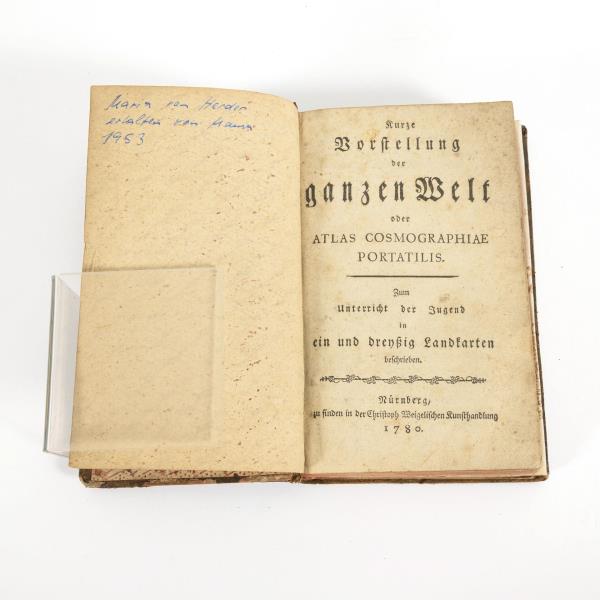 Maria von Herder
erhalten von Mama
1953
Kurze
Vorstellung
der
ganzen Welt
oder
ATLAS COSMOGRAPHIAE
PORTATILIS.
Zum
Unterricht der Jugend
in
ein und dreyßig Landkarten
beschrieben.
Nürnberg,
zu finden in der Christoph Weigelischen Kunsthandlung
1780.